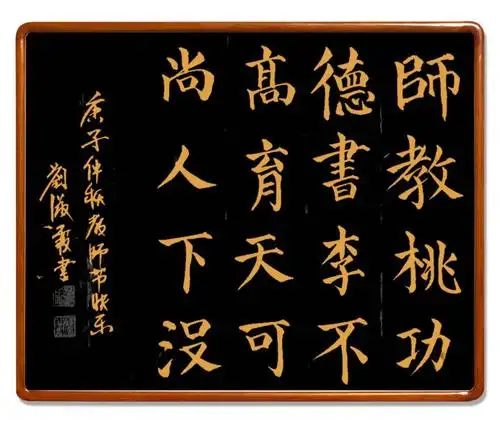 師德髙尚
教書育人
桃李天下
功不可没
庚子仲秋教师节快乐
劉霞書